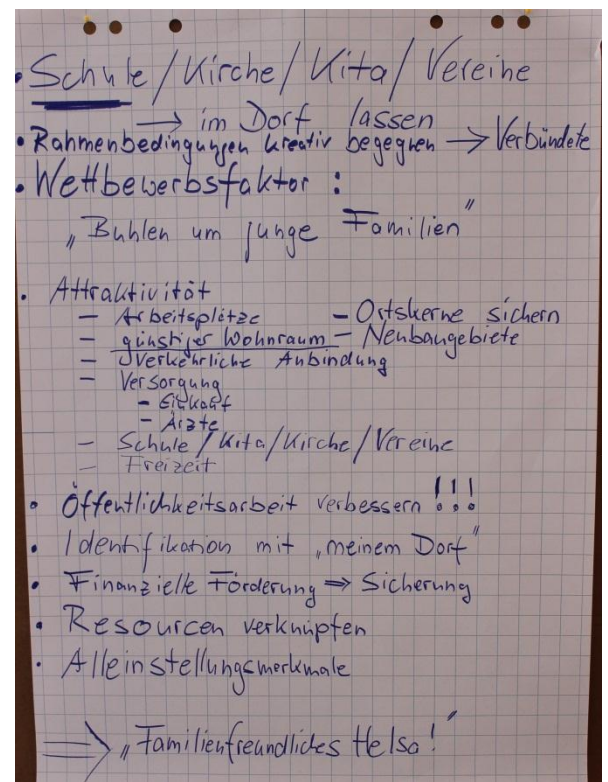 • Schule/Kirche/Kita/Vereine
→ im Dorf lassen
• Rahmenbedingungen kreativ begegnen → Verbündete
• Wettbewerbsfaktor :
„Buhlen um junge Familien"
• Attraktivität
– Arbeitsplätze – Ortskerne sichern
– günstiger Wohnraum – Neubaugebiete
– Verkehrliche Anbindung
– Versorgung
– Einkauf
– Ärzte
– Schule/Kita/Kirche/Vereine
– Freizeit
• Öffentlichkeitsarbeit verbessern !!!
• Identifikation mit „meinem Dorf"
• Finanzielle Förderung ⇒ Sicherung
• Resourcen verknüpfen
• Alleinstellungsmerkmale
⇒ „Familienfreundliches Helsa!"